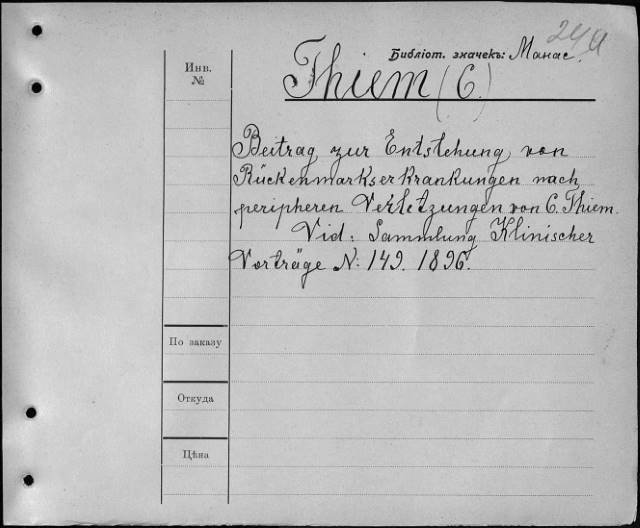 24a
Библіот. значекъ: Манас.
Инв.
№
Thiem (C.)
Beitrag zur Entstehung von
Rückenmarkserkrankungen nach
peripheren Verletzungen von C. Thiem.
Vid: Sammlung Klinischer
Vorträge N: 149. 1896.
По заказу
Откуда
Цѣна